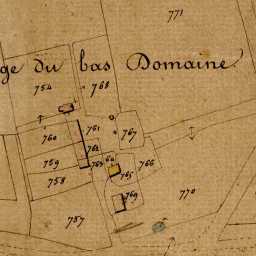 771
ge du bas Domaine
754 768
760 761 767
762
759 763 64 766
758 765
769 770
757